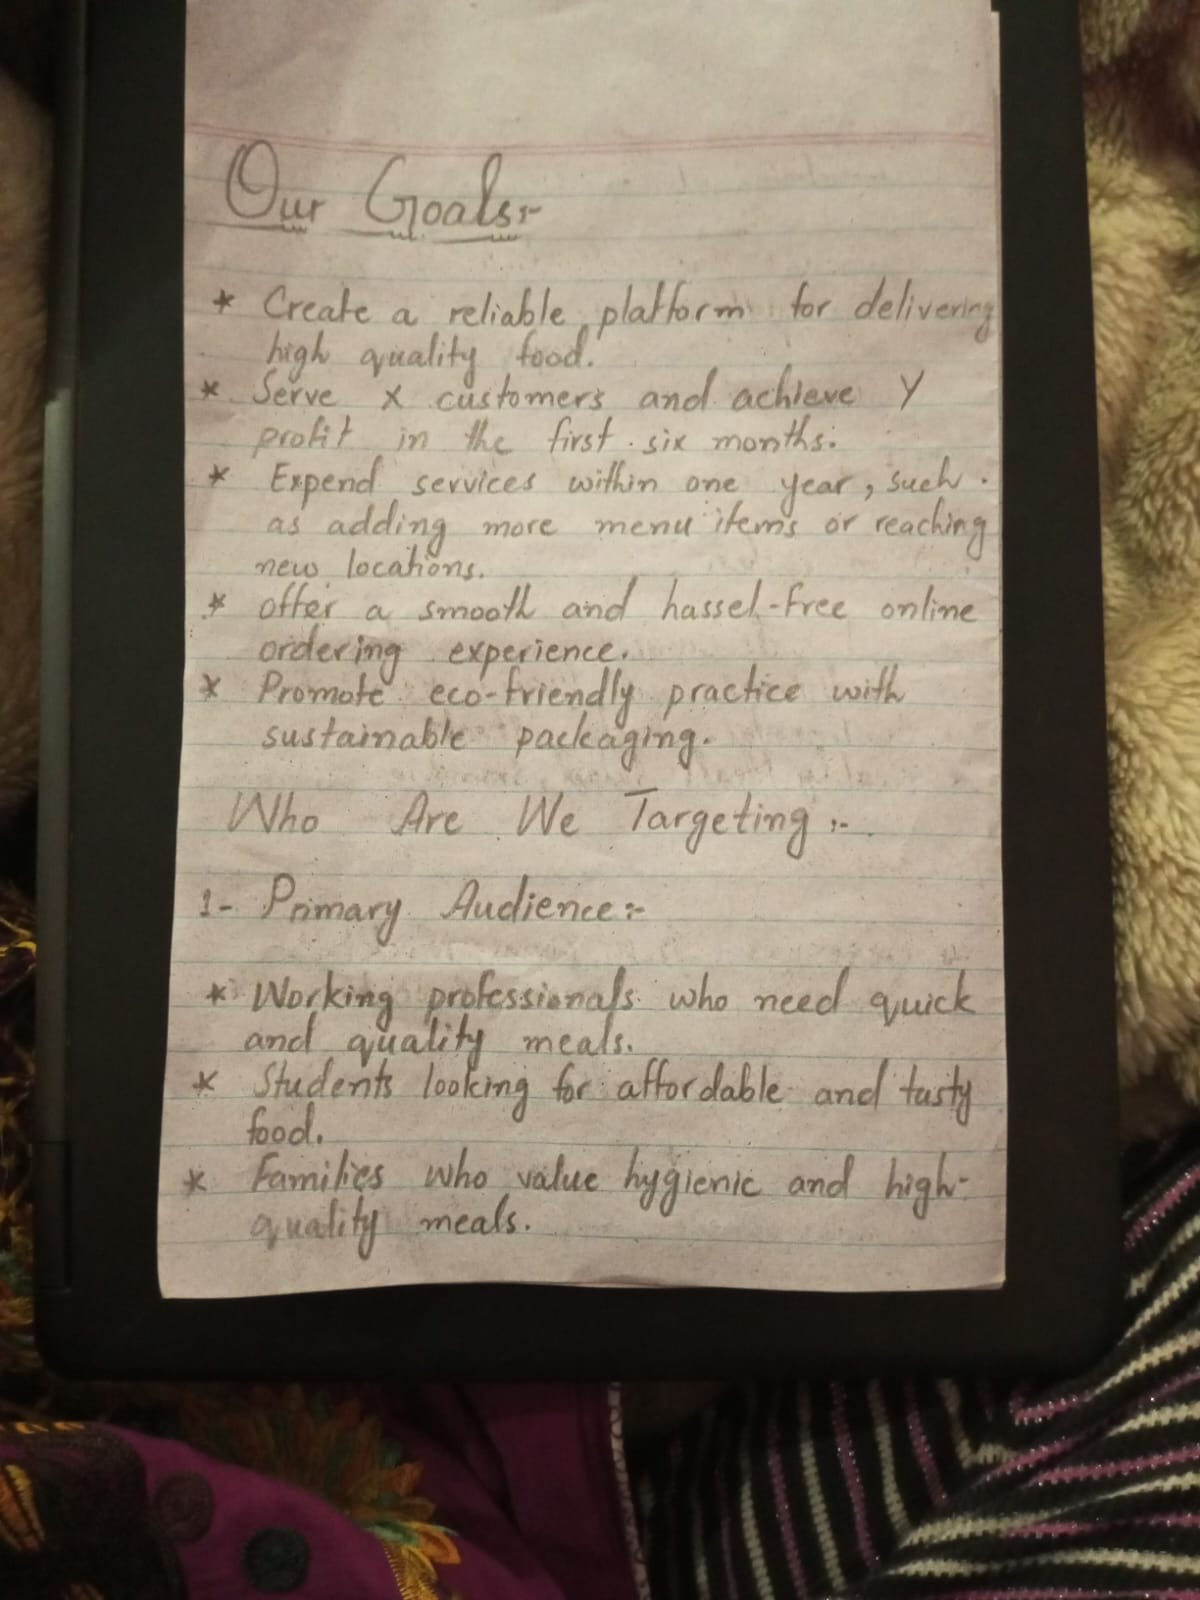 Our Goals:-
* Create a reliable platform for delivering
high quality food.
* Serve X customers and achieve Y
profit in the first six months.
* Expend services within one year, such
as adding more menu items or reaching
new locations.
* offer a smooth and hassel-free online
ordering experience.
* Promote eco-friendly practice with
sustainable packaging.
Who Are We Targeting :-
1- Primary Audience:-
* Working professionals who need quick
and quality meals.
* Students looking for affordable and tasty
food.
* Families who value hygienic and high-
quality meals.